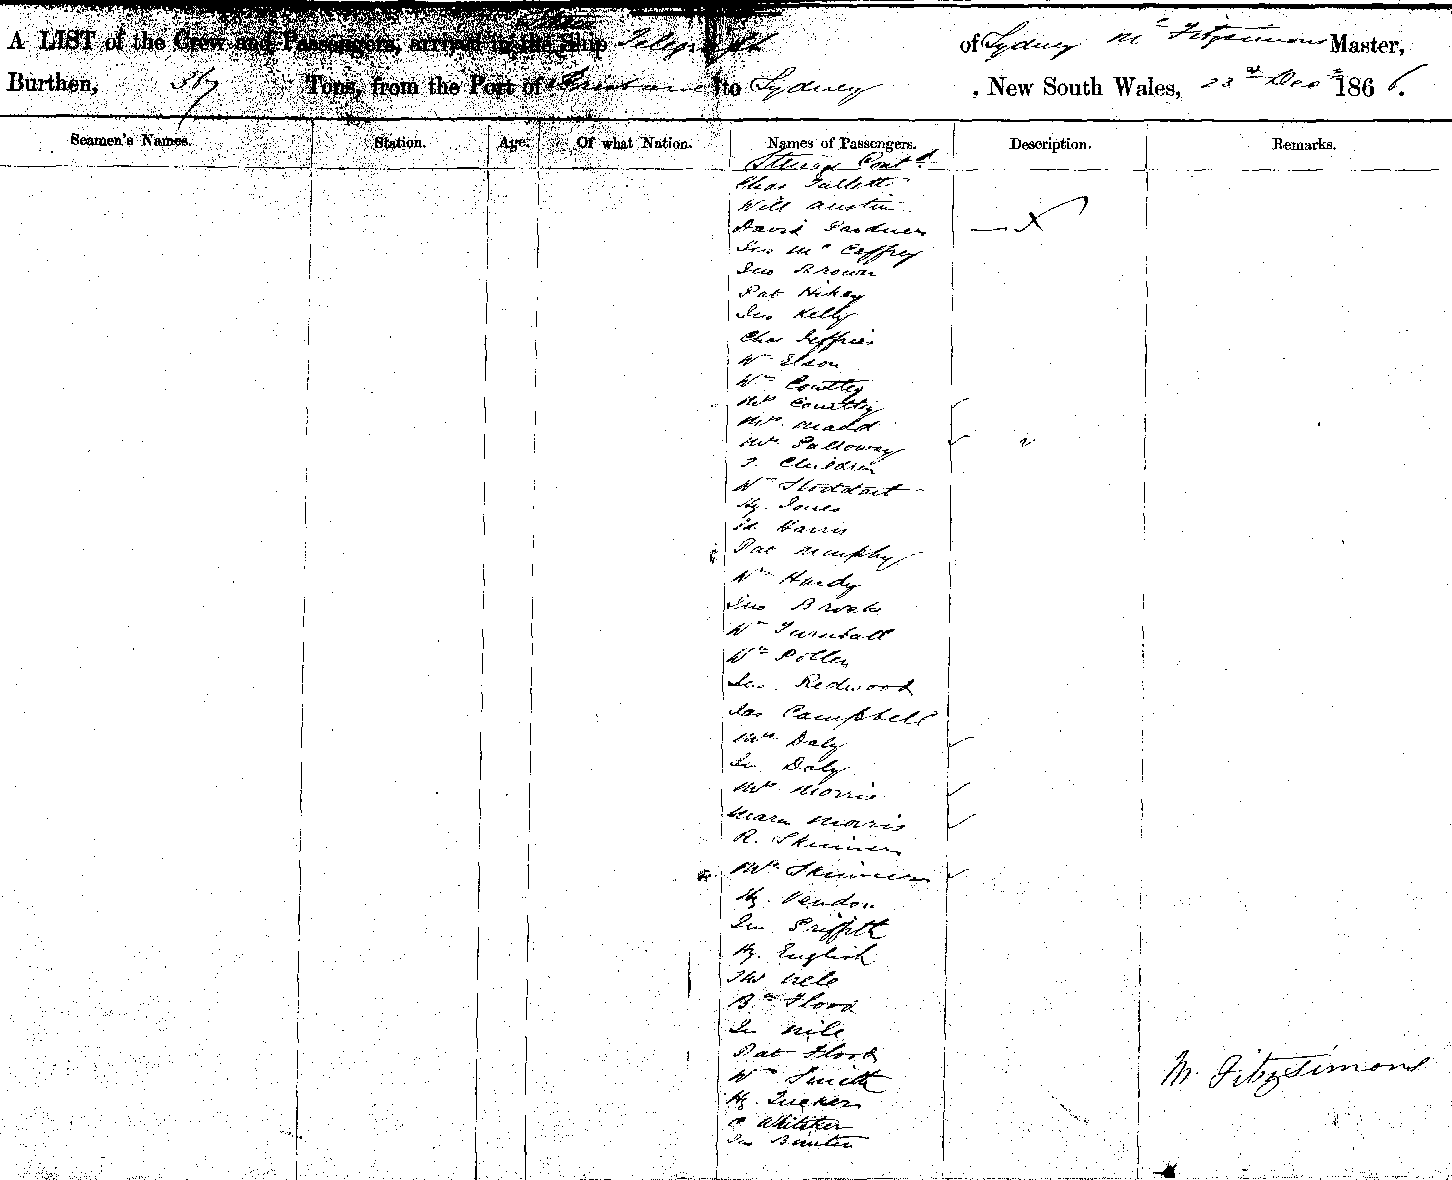 A LIST of the Crew and Passengers, arrived in the Ship Telegraph of Sydney Mc Fitzsimons Master,
Burthen, 367 Tons, from the Port of Brisbane to Sydney, New South Wales, 23rd Dec 1866.
Seamen's Names. Station. Age. Of what Nation. Names of Passengers. Description. Remarks.
Steerage Contd
Chas
Will Austin
David Gardner
Jno McCaffrey
Jno Brown
Pat Hickey
Jno Kelly
Chas Jeffries
Wm Elson
Wm
Mrs
Mrs
Mrs Galloway
2 Children
Wm Stoddart
Hy. Jones
Ed Harris
Pat Murphy
Wm Hardy
Jno
Wm Turnbull
Wm
Jno. Redwood
Jas Campbell
Mrs Daly
Jno Daly
Mrs Morris
Mary Morris
R. Skinner
Mrs Skinner
Hy. Vendon
Jno Griffith
Hy. English

Flood
Jno Nile
Pat Flood
Wm Smith
Hy. Tucker
C Whitaker
Jno
M. Fitzsimons